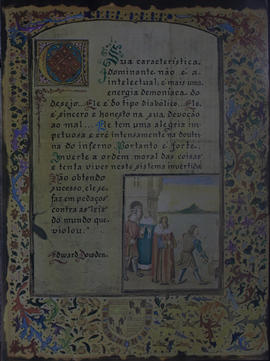 Sua característica,
dominante não é a
intelectual, é mais uma
energia demoníaca, do
desejo... Ele é do tipo diabólico... Ele
é sincero e honesto na sua devoção
ao mal... Ele tem uma alegria im
petuosa e crê intensamente na doutri
na do inferno. Portanto é forte.
Inverte a ordem moral das coisas
e tenta viver neste sistema invertido
Não obtendo
sucesso, ele se
faz em pedaços
contra as "leis"
do mundo que
violou."
Edward Dowden.